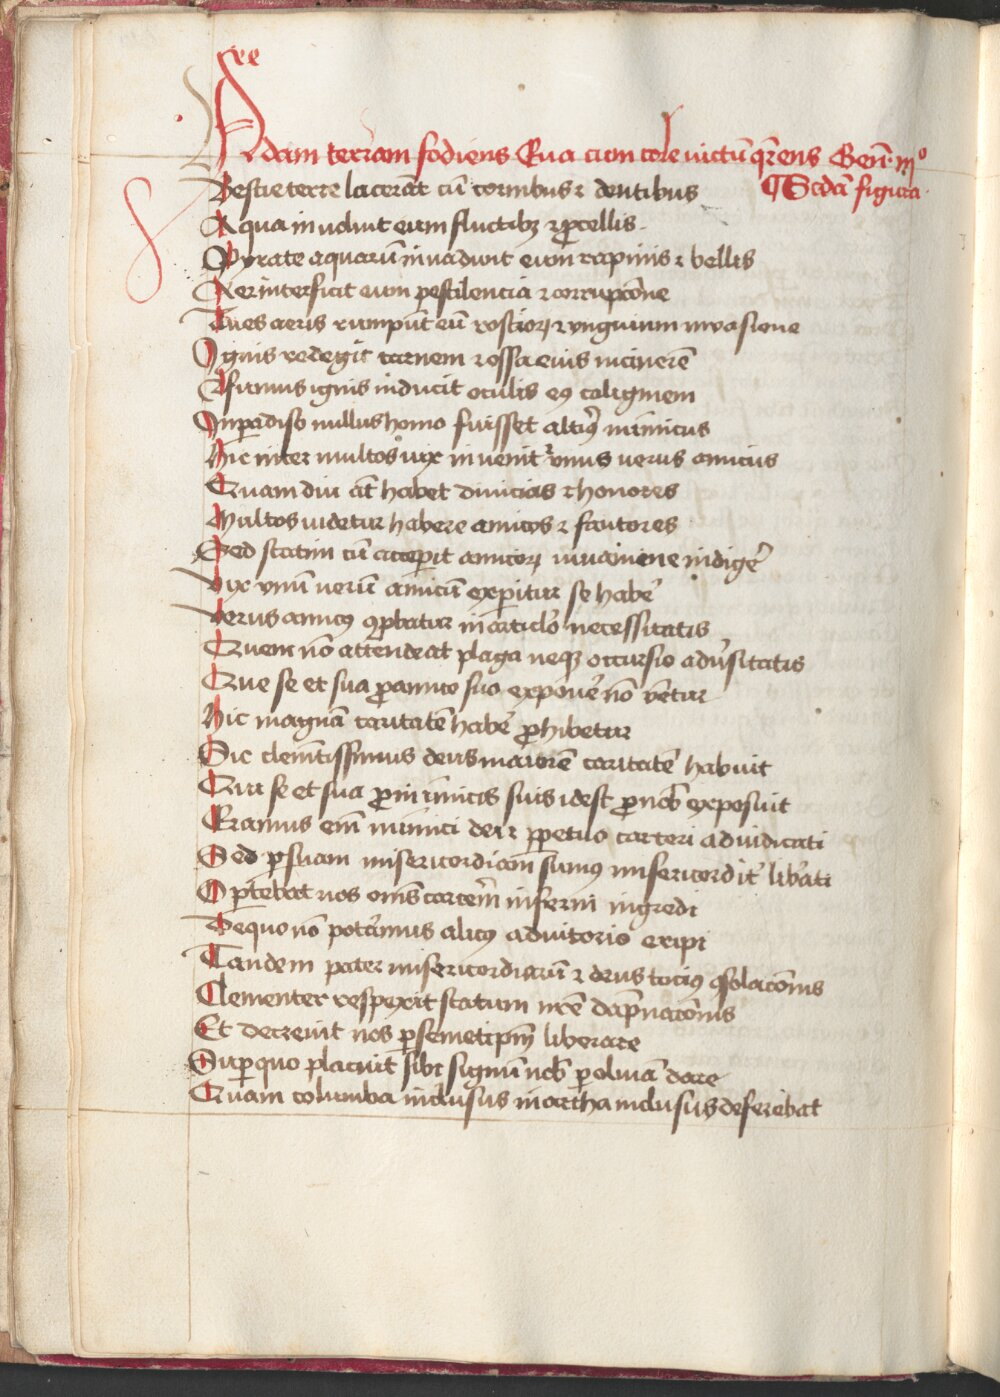 Adam terram fodiens Eua cum cole victū q̄rens Gen̄. iij°
¶ Scd̓a figura.
Bestie terre lacerāt cū cornibus ⁊ dentibus
Aqua inuoluit eum fluctibꝫ ⁊ ꝓcellis.
Pyrate aquarū inuadunt eum rapinis ⁊ bellis
Aer interficit eum pestilencia ⁊ corrupc̄one
Aues aeris rumpūt eū rostroꝝ ⁊ vnguium inuasione
Ignis redegit carnem ⁊ ossa eius in cinerē
⁊ fumus ignis inducit oculis eꝰ caliginem
In ꝑadiso nullus homo fuisset altiꝰ inimicus
Hic inter multos vix inuenit̉ vnus verus amicus
Quam diu āt habet diuicias ⁊ honores
Multos videtur habere amicos ⁊ fautores
Sed statim cū ceperit amicoꝝ iuuamine indige̓
Vix vnū verū amicū experitur se habe̓
Verus amicꝰ ꝯprobatur in articlo̓ necessitatis
Quem nō attendeat plaga neqꝫ occursio adu̓sitatis
Que se et sua ꝓ amico suo expone̓ nō v̓etur
Hic magnā caritatē habe̓ ꝓhibetur
Sic clemētissimus deus maiorē caritatē habuit
Qui se et sua ꝓ inimicis suis idest ꝓ nob̄ exposuit
Eramus em̄ inimici dei ⁊ ꝑpetuo carceri adiudicati
Sed ꝑ suam misericordiam sumꝰ misericordit̓ lib̓ati
Optebat nos om̄s carcerē inferni ingredi
De quo nō potȩramus alicꝰ adiutorio eripi
Tandem pater misericordiarū ⁊ deus tociꝰ ꝯsolac̄onis
Clementer respexit statum nr̄e dāpnac̄onis
Et decreuit nos ꝑ semetipm̄ liberare
Suꝑ quo placuit sibi signū nob̄ ꝑ oliuā dare
Quam columba inclusus in archa inclusus deferebat